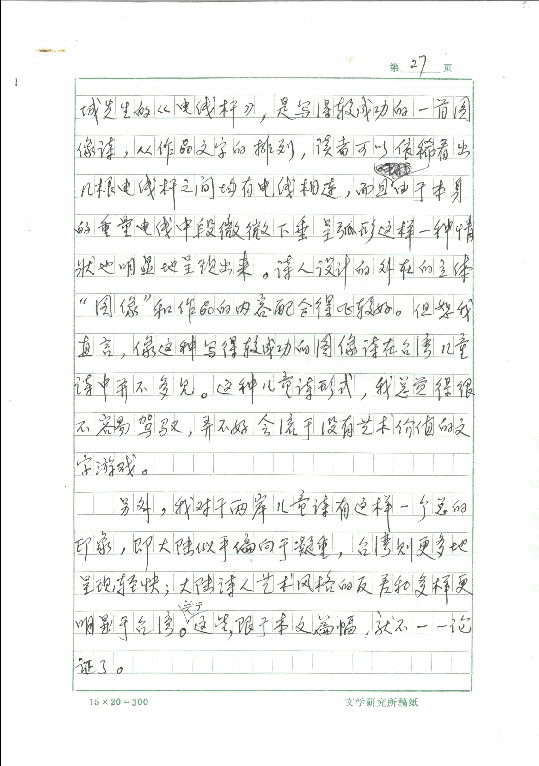 第 27 页
城先生的《电线杆》，是写得较成功的一首图
像诗，从作品文字的排列，读者可以依稀看出
几根电线杆之间均有电线相连，而且由于本身
的重量电线中段微微下垂呈弧形这样一种情
状也明显地呈现出来。诗人设计的外在的立体
“图像”和作品的内容配合得比较好。但恕我
直言，像这种写得较成功的图像诗在台湾儿童
诗中并不多见。这种儿童诗形式，我总觉得很
不容易驾驭，弄不好会流于没有艺术价值的文
字游戏。
另外，我对于两岸儿童诗有这样一个总的
印象，即大陆似乎偏向于凝重，台湾则更多地
呈现轻快；大陆诗人艺术风格的反差和多样更
明显于台湾。关于这些，限于本文篇幅，就不一一论
证了。
15×20=300 文学研究所稿纸